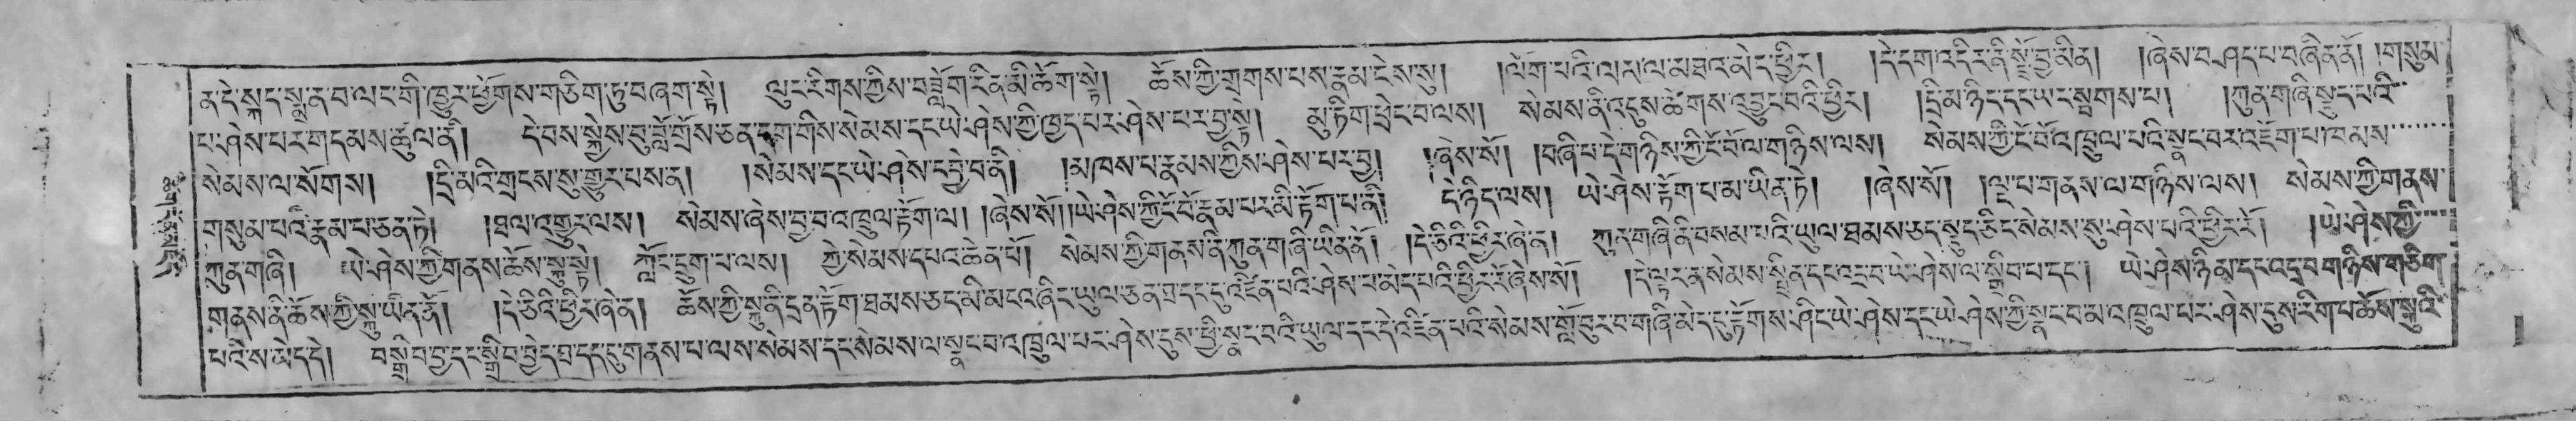 ན་དེ་སྐད་སྨྲ་ན་བ་ལང་གི་ཁྱུར་ཕྱོགས་གཅིག་ཏུ་བཞག་སྟེ། ལུང་རིགས་ཀྱིས་བཟློག་རིན་མི་ཆོག་སྟེ། ཆོས་ཀྱི་གྲགས་པས་རྣམ་ངེས་སུ། །ལོག་པའི་ལམ་ལ་མཐའ་མེད་ཕྱིར། །དེ་དག་འདིར་ནི་སྤྲོ་བྱ་མིན། །ཞེས་བཤད་པ་བཞིན་ནོ། །གསུམ་
པ་ཤེས་པར་གདམས་ཚུལ་ནི། དེ་བས་སྐྱེས་བུ་བློ་གྲོས་ཅན་དག་གིས་སེམས་དང་ཡེ་ཤེས་ཀྱི་ཁྱད་པར་ཤེས་པར་བྱ་སྟེ། མུ་ཏིག་ཕྲེང་བ་ལས། སེམས་ནི་འདུས་ཚོགས་འབྱུང་བའི་ཕྱིར། །དྲི་མ་ཉིད་དང་ཡང་སྦགས་པ། །ཀུན་གཞི་སྡུད་པའི་
སེམས་ལ་སོགས། །དྲི་མའི་གྲངས་སུ་གྱུར་པས་ན། །སེམས་དང་ཡེ་ཤེས་དབྱེ་བ་ནི། །མཁས་པ་རྣམས་ཀྱིས་ཤེས་པར་བྱ། །ཞེས་སོ། །བཞི་པ་དེ་གཉིས་ཀྱི་ངོ་བོ་ལ་གཉིས་ལས། སེམས་ཀྱི་ངོ་བོ་འཁྲུལ་པའི་སྣང་བར་འཛོག་པ་ཁམས་
གསུམ་པའི་རྣམ་པ་ཅན་ཏེ། །ཐལ་འགྱུར་ལས། སེམས་ཞེས་བྱ་བ་འཁྲུལ་རྟོག་ལ། །ཞེས་སོ། །ཡེ་ཤེས་ཀྱི་ངོ་བོ་རྣམ་པར་མི་རྟོག་པ་ནི། དེ་ཉིད་ལས། ཡེ་ཤེས་རྟོག་པ་མ་ཡིན་ཏེ། །ཞེས་སོ། །ལྔ་པ་གནས་ལ་གཉིས་ལས། སེམས་ཀྱི་གནས་
ཀུན་གཞི། ཡེ་ཤེས་ཀྱི་གནས་ཆོས་སྐུ་སྟེ། ཀློང་དྲུག་པ་ལས། ཀྱེ་སེམས་དཔའ་ཆེན་པོ། སེམས་ཀྱི་གནས་ནི་ཀུན་གཞི་ཡིན་ནོ། །དེ་ཅིའི་ཕྱིར་ཞེ་ན། ཀུན་གཞི་ནི་བསམ་པའི་ཡུལ་ཐམས་ཅད་སྡུད་ཅིང་སེམས་སུ་ཤེས་པའི་ཕྱིར་རོ། །ཡེ་ཤེས་ཀྱི་
གནས་ནི་ཆོས་ཀྱི་སྐུ་ཡིན་ནོ། །དེ་ཅིའི་ཕྱིར་ཞེ་ན། ཆོས་ཀྱི་སྐུ་ནི་དྲན་རྟོག་ཐམས་ཅད་མི་མངའ་ཞིང་ཡུལ་ཅན་བྲ་དང་དུ་འཛིན་པའི་ཤེས་པ་མེད་པའི་ཕྱིར་རོ་ཞེས་སོ། །དེ་ལྟར་ན་སེམས་སྤྲིན་དང་འདྲ་བ་ཡེ་ཤེས་ལ་སྒྲིབ་པ་དང་། ཡེ་ཤེས་ཉི་མ་དང་འདྲ་བ་གཉིས་གཅིག་
པའི་ས་མེད་དེ། བསྒྲིབ་བྱ་དང་སྒྲིབ་བྱེད་བྲ་དད་དུ་གནས་པ་ལས་སེམས་དང་སེམས་ལ་སྣང་བ་འཁྲུལ་པར་ཤེས་དུས་ཕྱི་སྣང་བའི་ཡུལ་དང་དེ་འཛིན་པའི་སེམས་གློ་བུར་བ་གཞི་མེད་དུ་རྟོགས་ཤིང་ཡེ་ཤེས་དང་ཡེ་ཤེས་ཀྱི་སྣང་བ་མ་འཁྲུལ་པར་ཤེས་དུས་རིག་པ་ཆོས་སྐུའི་